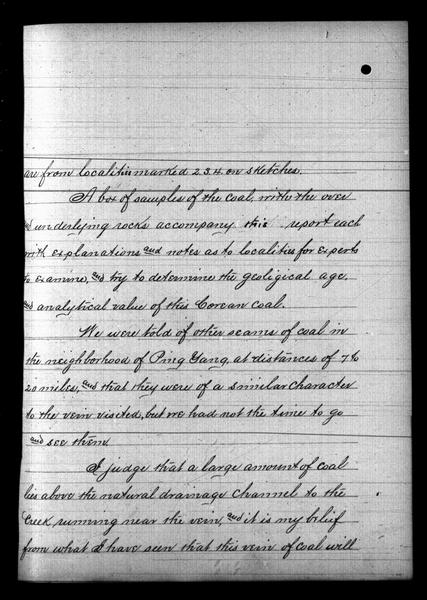 are from localities marked 2.3.4. on sketches.
A box of samples of the coal, with the over
and underlying rocks accompany this report each
with explanations and notes as to localities for experts
to examine, and try to determine the geoligical age,
and analytical value of this Corean coal.
We were told of other seams of coal in
the neighborhood of Ping Yang, at distances of 7 to
20 miles, and that they were of a similar character
to the vein visited, but we had not the time to go
and see them
I judge that a large amount of coal
lies above the natural drainage channel to the
Creek, running near the vein, and it is my belief
from what I have seen that this vein of coal will